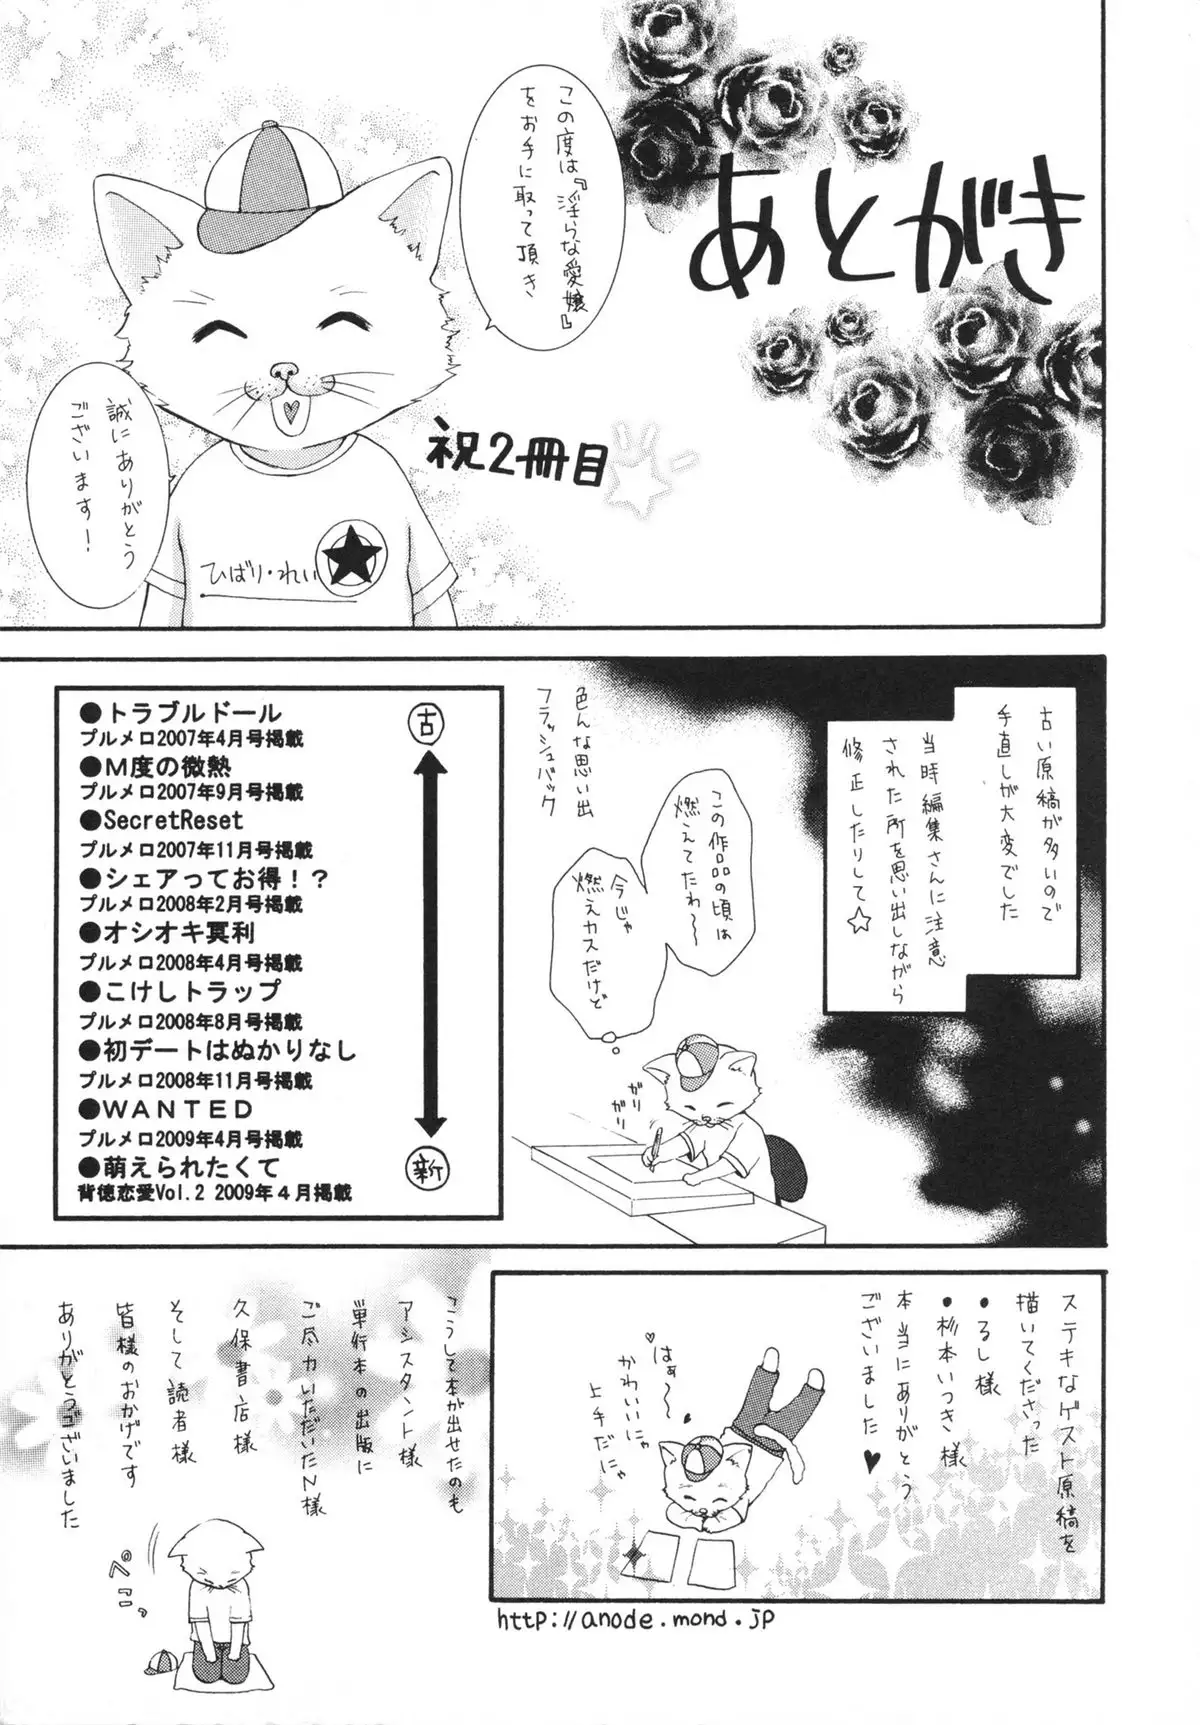 あとがき
この度は『淫らな愛嬢』
をお手に取って頂き
誠にありがとう
ございます！
祝2冊目
ひばり・れい
古い原稿が多いので
手直しが大変でした
当時編集さんに注意
された所を思い出しながら
修正したりして☆
色んな思い出
フラッシュバック
この作品の頃は
燃えてたわ〜
今じゃ
燃えカスだけど
ガリ
ガリ
古
●トラブルドール
プルメロ2007年4月号掲載
●Ｍ度の微熱
プルメロ2007年9月号掲載
●SecretReset
プルメロ2007年11月号掲載
●シェアってお得！？
プルメロ2008年2月号掲載
●オシオキ冥利
プルメロ2008年4月号掲載
●こけしトラップ
プルメロ2008年8月号掲載
●初デートはぬかりなし
プルメロ2008年11月号掲載
●ＷＡＮＴＥＤ
プルメロ2009年4月号掲載
●萌えられたくて
背徳恋愛Vol.2 2009年４月掲載
新
ステキなゲスト原稿を
描いてくださった
・るし様
・杉本いつき様
本当にありがとう
ございました♥
はぁ〜♥
かわいいにゃ
上手だにゃ
http://anode.mond.jp
こうして本が出せたのも
アシスタント様
単行本の出版に
ご尽力いただいたN様
久保書店様
そして読者様
皆様のおかげです
ありがとうございました
ぺこ